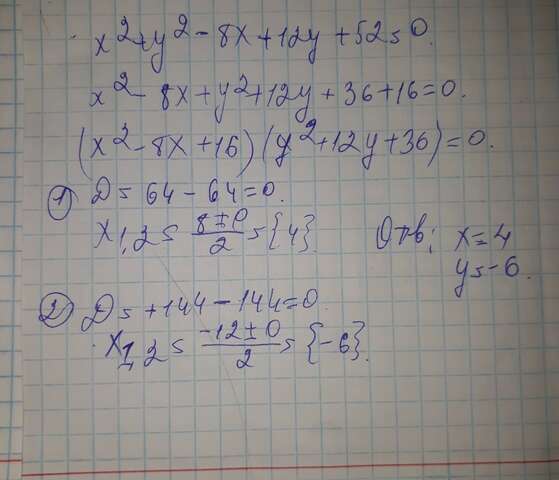 x²+y²-8x+12y+52=0.
x²-8x+y²+12y+36+16=0.
(x²-8x+16)(y²+12y+36)=0.
① D=64-64=0.
x1,2=8±0/2={4}.
Отв: x=4
y=-6.
② D=+144-144=0.
x1,2=-12±0/2={-6}.